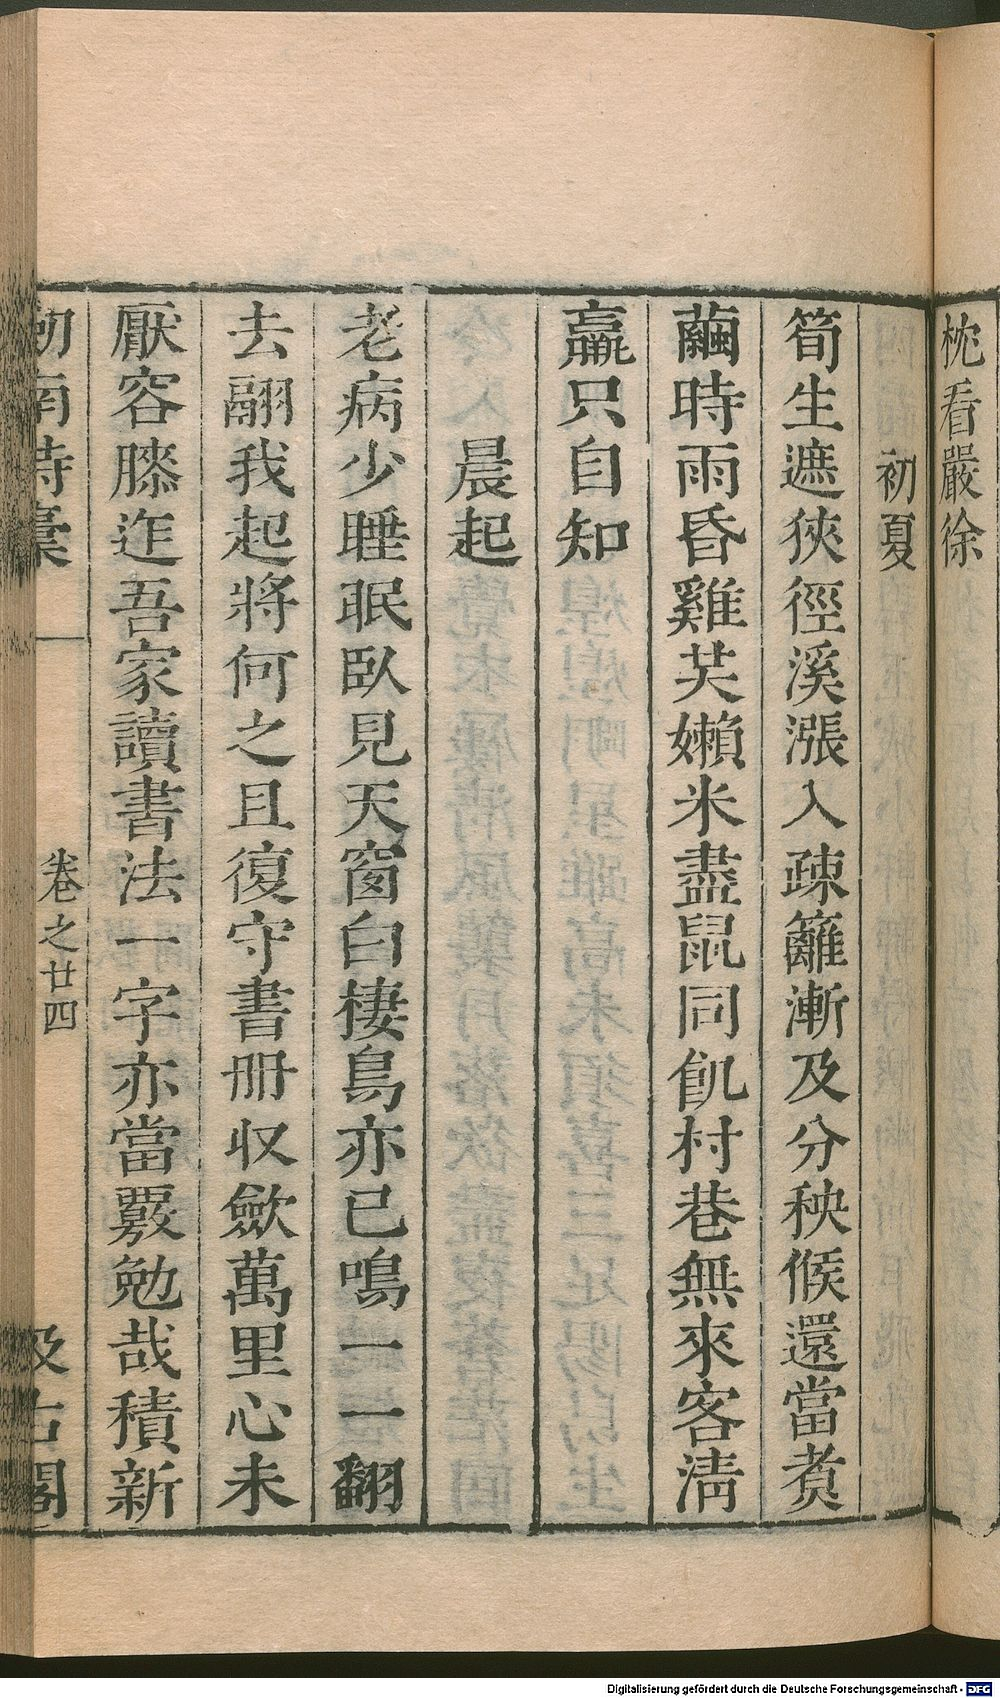 枕看嚴徐
初夏
筍生遮狹徑溪漲入疎籬漸及分秧候還當煑
繭時雨昏雞芡嬾米盡鼠同飢村巷無來客清
羸只自知
晨起
老病少睡眠臥見天窗白棲鳥亦已鳴一一翻
去翮我起將何之且復守書册収歛萬里心未
厭容膝迮吾家讀書法一字亦當覈勉哉積新
劒南詩稾
卷之廿四
汲古閣
Digitalisierung gefördert durch die Deutsche Forschungsgemeinschaft - DFG